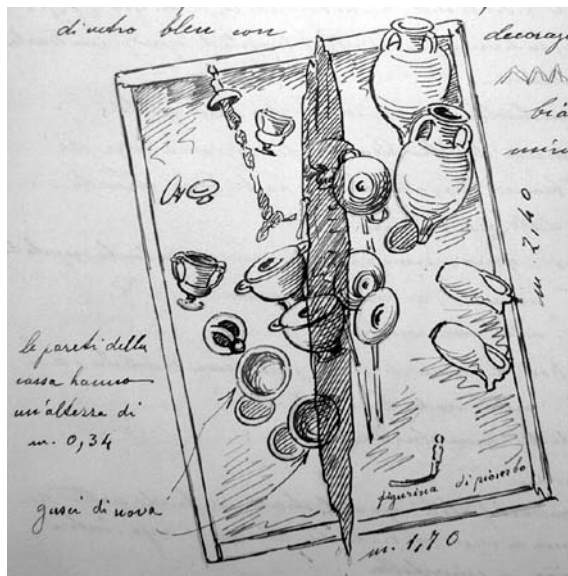 di vetro bleu con
decoraz
bia
m. 2,40
le pareti della
cassa hanno
un'altezza di
m. 0,34
gusci di uova
figurina di piombo
m. 1,70